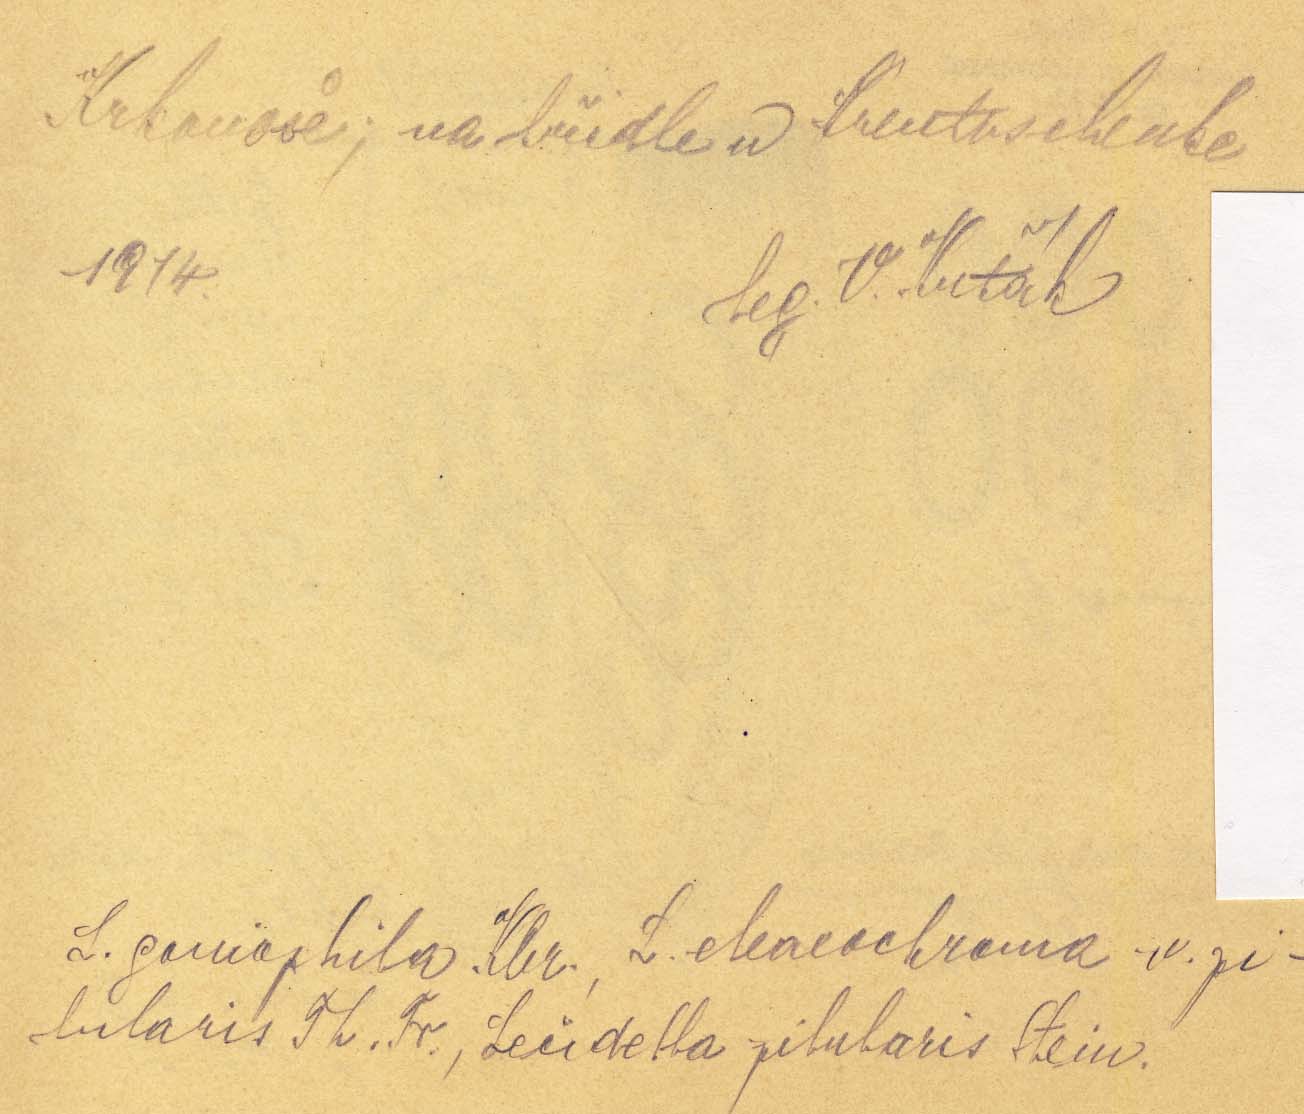 Krkonoše; na břidle u
1914.
leg. V. Kuťák
L. goniophila Kbr., L. elaeochroma v. pi-
lularis Th. Fr., Lecidella pilularis Stein.